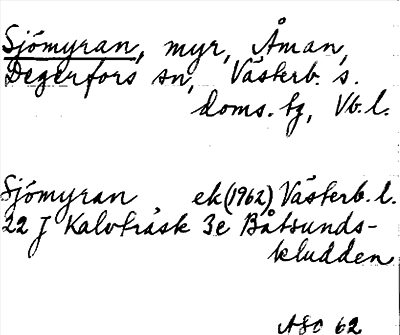 Sjömyran, myr, Åman,
Degerfors sn, Västerb. s.
doms. tg, Vb. l.
Sjömyran, ek (1962) Västerb. l.
22 J Kalvträsk 3e Båtsunds-
kludden
ASC 62